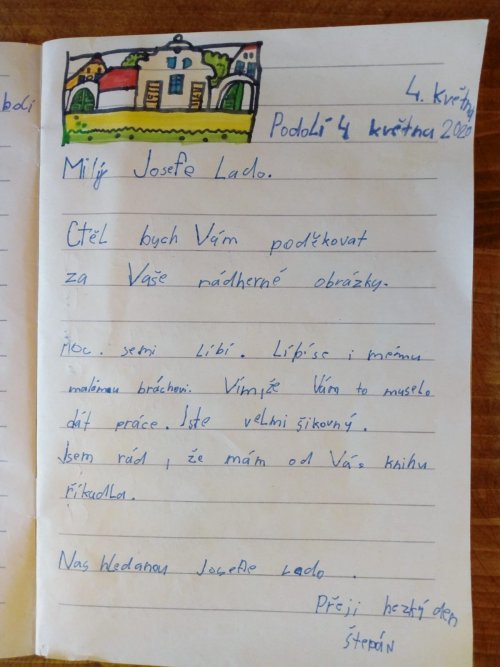 boli
4. května
Podolí 4 května 2020
Milý Josefe Lado.
Ctěl bych Vám poděkovat
za Vaše nádherné obrázky.
Moc. semi líbí. Líbíse i mému
malému bráchovi. Vím,že Vám to muselo
dát práce. Jste velmi šikovný.
Jsem rád, že mám od Vás knihu
říkadla.
Nas hledanou Josefe Lado.
Přeji hezký den
Štěpán